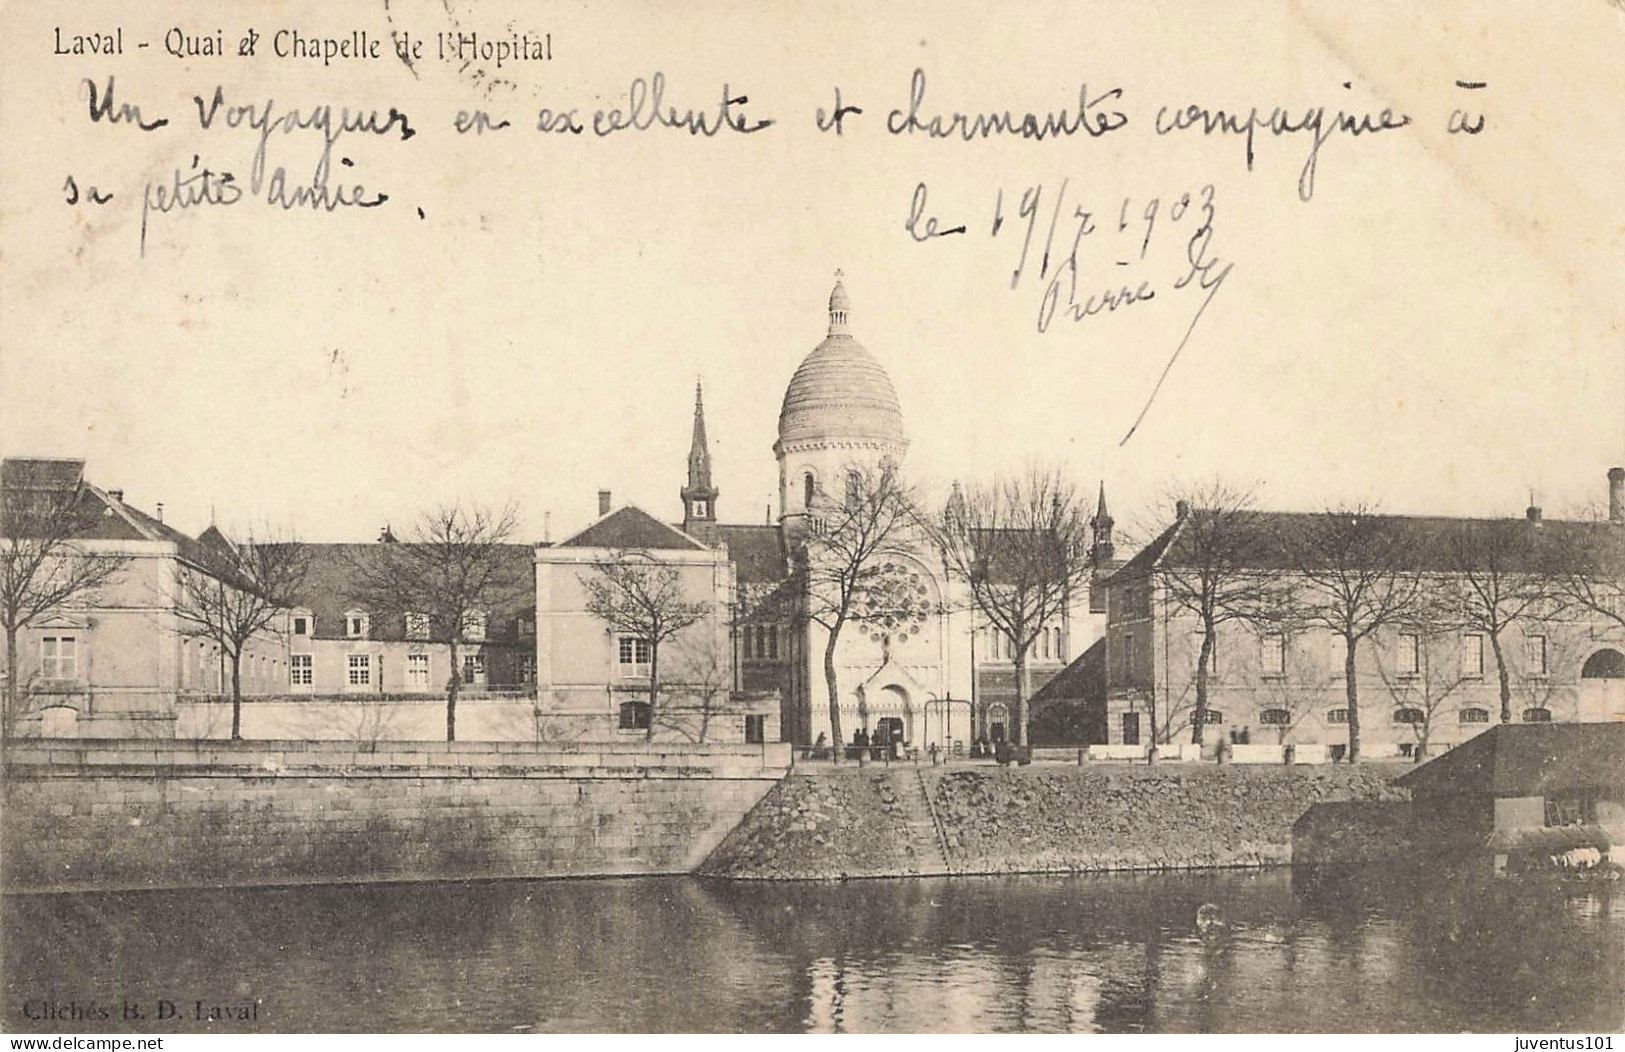 Laval - Quai et Chapelle de l'Hopital
Un Voyageur en excellente et charmante compagnie à
sa petite Amie.
le 19/7 1903
Pierre
Clichés B. D. Laval
www.delcampe.net
juventus101